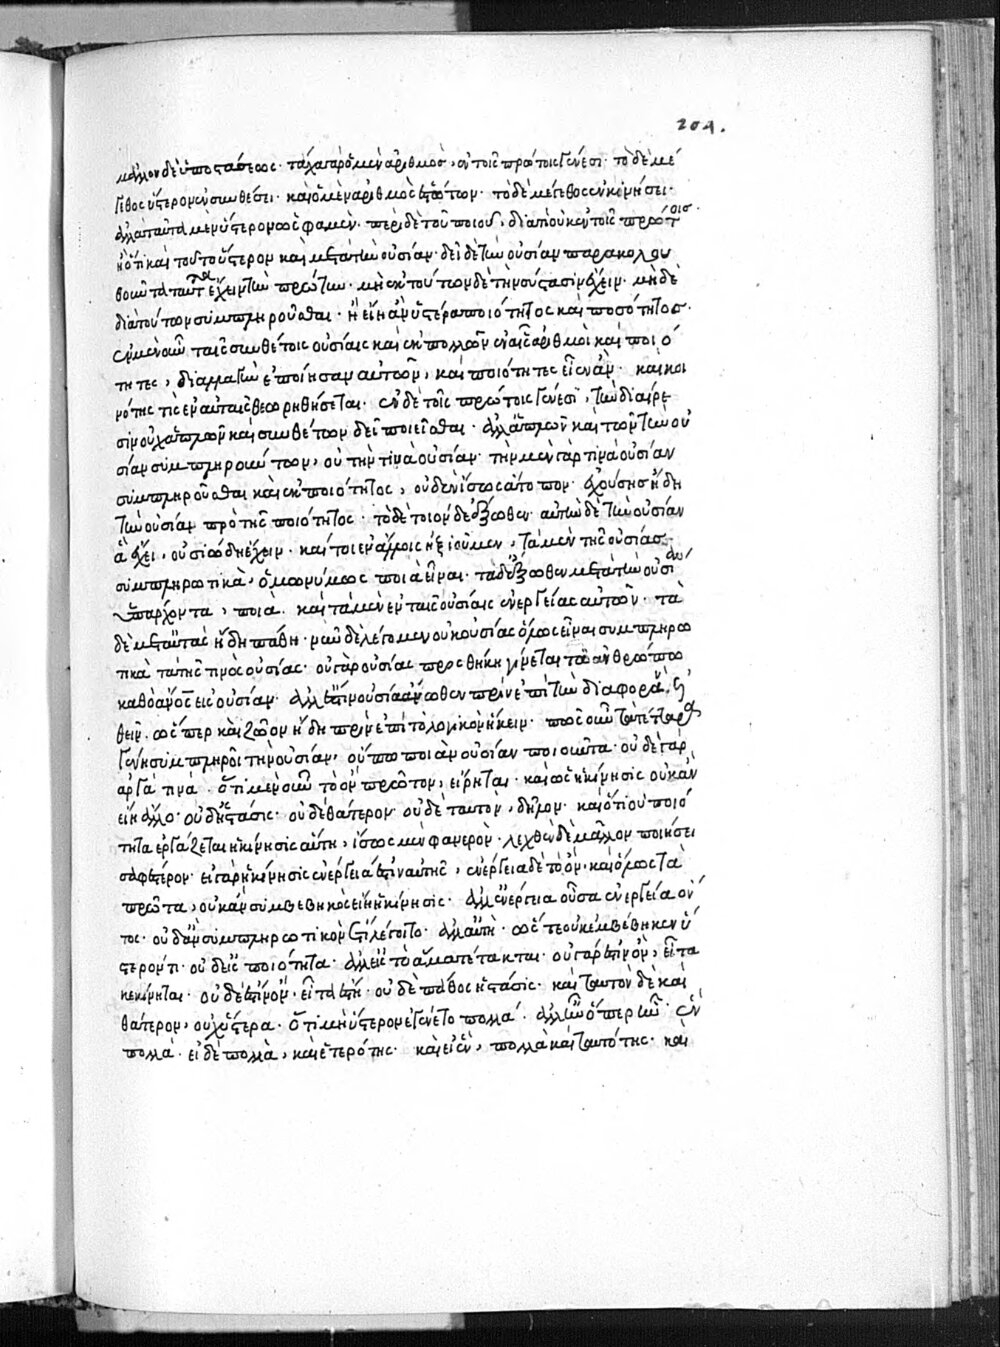 μᾶλλον δὲ ὑποστάσεως· τάχα γὰρ ὁ μὲν ἀριθμὸς, ἐν τοῖς πρώτοις γένεσι· τὸ δὲ μέ
γεθος ὕστερον ἐν συνθέσει· καὶ ὁ μὲν ἀριθμὸς ἑστώτων· τὸ δὲ μέγεθος ἐν κινήσει·
ἀλλὰ ταῦτα μὲν ὕστερον ὡς φαμὲν· περὶ δὲ τοῦ ποιοῦ, διατί οὐκ ἐν τοῖς πρώτοις·
ἢ ὅτι καὶ τοῦτο ὕστερον καὶ μετὰ τὴν οὐσίαν· δεῖ δὲ τὴν οὐσίαν παρακολου
θοῦντα ταῦτα ἔχειν τὴν πρώτην· μὴ ἐκ τούτων δὲ τὴν σύστασιν ἔχειν· μὴ δὲ
διὰ τούτων συμπληροῦσθαι· ἢ εἴη ἂν ὑστέρα ποιότητος καὶ ποσότητος·
ἐν μὲν οὖν ταῖς συνθέτοις οὐσίαις καὶ ἐκ πολλῶν ἐν αἷς ἀριθμοὶ καὶ ποιό
τητες, διαλλαγὴν ἐποίησαν αὐτῶν, καὶ ποιότητες εἶεν ἂν· καὶ κοι
νότης τὶς ἐν αὐταῖς θεωρηθήσεται· ἐν δὲ τοῖς πρώτοις γένεσι, τὴν διαίρε
σιν οὐχ ἁπλῶν καὶ συνθέτων δεῖ ποιεῖσθαι· ἀλλ' ἁπλῶν καὶ τῶν τὴν οὐ
σίαν συμπληρούντων, οὐ τὴν τινὰ οὐσίαν· τὴν μὲν γὰρ τινὰ οὐσίαν
συμπληροῦσθαι καὶ ἐκ ποιότητος, οὐδὲν ἴσως ἄτοπον· ἐχούσης ἤδη
τὴν οὐσίαν πρὸ τῆς ποιότητος· τὸ δὲ τοιόνδε ἔξωθεν· αὐτὴν δὲ τὴν οὐσίαν
ἃ ἔχει, οὐσιώδη ἔχειν· καί τοι ἐν ἄλλοις ἠξιοῦμεν, τὰ μὲν τῆς οὐσίας
συμπληρωτικὰ, ὁμωνύμως ποιὰ εἶναι· τὰ δ' ἔξωθεν μετὰ τὴν οὐσίαν
ὑπάρχοντα, ποιὰ· καὶ τὰ μὲν ἐν ταῖς οὐσίαις ἐνεργείας αὐτῶν· τὰ
δὲ μετ' αὐτὰς ἤδη πάθη· νῦν δὲ λέγομεν οὐκ οὐσίας ὅλως εἶναι συμπληρω
τικὰ τὰ τῆς τινὸς οὐσίας· οὐ γὰρ οὐσίας προσθήκη γίνεται τῷ ἀνθρώπῳ
καθὸ ἄνος εἰς οὐσίαν· ἀλλ' ἔστιν οὐσία ἄνωθεν πρὶν ἐπὶ τὴν διαφορὰν ἐλ
θεῖν· ὥσπερ καὶ ζῶον ἤδη πρὶν ἐπὶ τὸ λογικὸν ἥκειν· πῶς οὖν τὰ τέτταρα
γένη συμπληροῖ τὴν οὐσίαν, οὔπω ποιὰν οὐσίαν ποιοῦντα· οὐδὲ γὰρ
αργὰ τινὰ· ὅτι μὲν οὖν τὸ ὂν πρῶτον, εἴρηται· καὶ ὡς ἡ κίνησις οὐκ ἂν
εἴη ἄλλο· οὐδ' ἡ στάσις· οὐδὲ θάτερον· οὐδὲ ταυτὸν, δῆλον· καὶ ὅτι οὐ ποιό
τητα ἐργάζεται ἡ κίνησις αὕτη, ἴσως μὲν φανερὸν· λεχθὲν δὲ μᾶλλον ποιήσει
σαφέστερον· εἰ γὰρ ἡ κίνησις ἐνέργειά ἐστιν αὐτῆς, ἐνέργεια δὲ τὸ ὂν· καὶ ὅλως τὰ
πρῶτα, οὐκ ἂν συμβεβηκὸς εἴη ἡ κίνησις· ἀλλ' ἐνέργεια οὖσα ἐνεργείᾳ ὄν
τος· οὐδ' ἂν συμπληρωτικὸν ἔτι λέγοιτο· ἀλλ' αὐτὴ· ὥστε οὐκ ἐμβέβηκεν ὑ
στέρον τι· οὐδ' εἰς ποιότητα· ἀλλ' εἰς τὸ ἅμα τέτακται· οὐ γάρ ἐστιν ὂν, εἶτα
κεκίνηται· οὐδέ ἐστιν ὂν· εἶτα ἔστη· οὐδὲ πάθος ἡ στάσις· καὶ ταυτὸν δὲ καὶ
θάτερον, οὐχ ὕστερα· ὅτι μὴ ὕστερον ἐγένετο πολλὰ· ἀλλ' ἦν ὅπερ ἦν· ἓν
πολλὰ· εἰ δὲ πολλὰ, καὶ ἑτερότης· καὶ εἰ ἓν, πολλὰ καὶ ταυτότης· καὶ